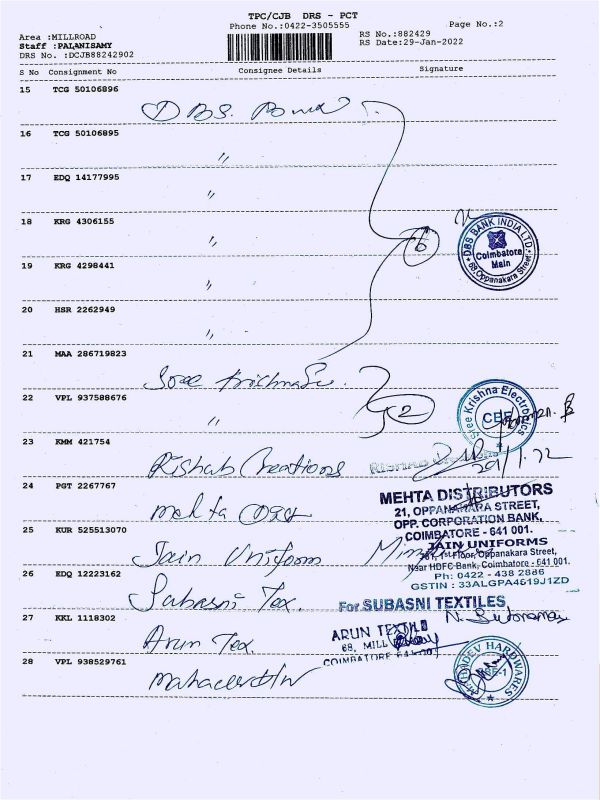 TPC/CJB DRS - PCT
Phone No.:0422-3505555
Page No.:2
Area :MILLROAD
Staff :PALANISAMY
DRS No. :DCJB88242902
RS No.:882429
RS Date:29-Jan-2022
S No Consignment No Consignee Details Signature
15 TCG 50106896
DBS. Bank
16 TCG 50106895
"
17 EDQ 14177995
"
18 KRG 4306155
"
6
DBS BANK INDIA LTD.
Coimbatore
Main
68, Oppanakara Street
19 KRG 4298441
"
20 HSR 2262949
"
21 MAA 286719823
22 VPL 937588676
"
2
Sree Krishna Electronics
CBE
23 KMM 421754
Rishab Creations
29/1/22
24 PGT 2267767
Mehta
MEHTA DISTRIBUTORS
21, OPPANAKARA STREET,
OPP. CORPORATION BANK,
COIMBATORE - 641 001.
25 KUR 525513070
Jain Uniform
JAIN UNIFORMS
1st Floor, Oppanakara Street,
Near HDFC Bank, Coimbatore - 641 001.
Ph: 0422 - 438 2886
GSTIN : 33ALGPA4619J1ZD
26 EDQ 12223162
Subasni Tex.
For SUBASNI TEXTILES
27 KKL 1118302
Arun Tex.
ARUN TEXTILE
68, MILL
COIMBATORE 641 001
28 VPL 938529761
MAHADEV HARDWARES